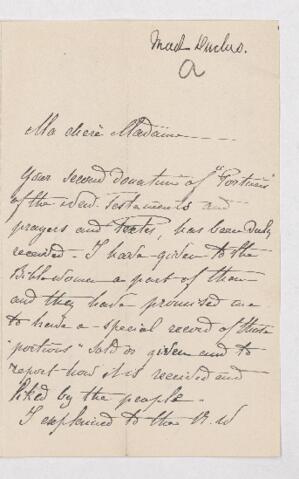 Mad. Duclus.
a
Ma chère Madame
Your second donation of "Portions"
of the New-Testaments and
prayers and texts, has been duly
received - I have given to the
Biblewomen a part of them
and they have promised me
to have a special record of these
"portions" sold or given and to
report how it is received and
liked by the people -
I explained to the B.W